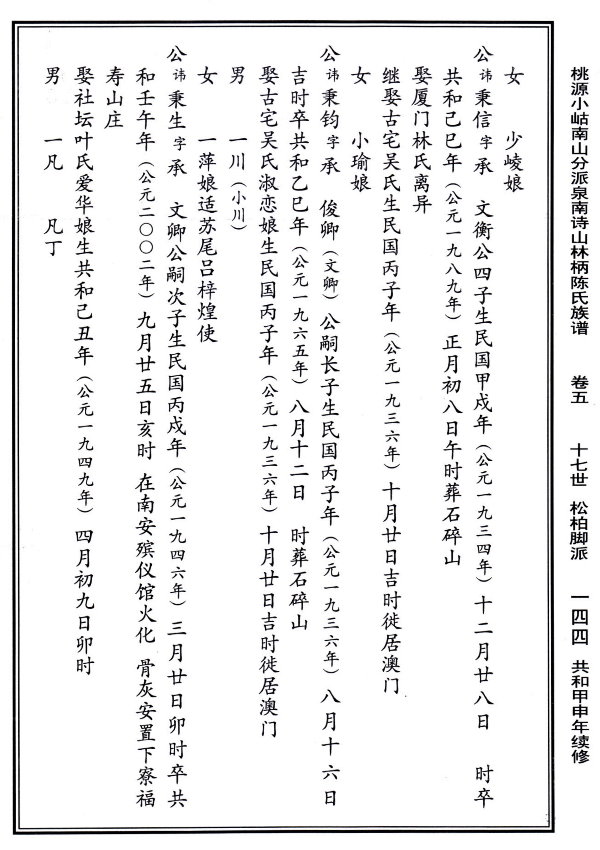 桃源小岵南山分派泉南诗山林柄陈氏族谱 卷五 十七世 松柏脚派 一四四 共和甲申年续修
女 少崚娘
公讳秉信字承 文衡公四子生民国甲戍年（公元一九三四年）十二月廿八日 时卒
共和己巳年（公元一九八九年）正月初八日午时葬石碎山
娶厦门林氏离异
继娶古宅吴氏生民国丙子年（公元一九三六年）十月廿日吉时徙居澳门
女 小瑜娘
公讳秉钧字承 俊卿（文卿）公嗣长子生民国丙子年（公元一九三六年）八月十六日
吉时卒共和乙巳年（公元一九六五年）八月十二日 时葬石碎山
娶古宅吴氏淑恋娘生民国丙子年（公元一九三六年）十月廿日吉时徙居澳门
男 一川（小川）
女 一萍娘适苏尾吕梓煌使
公讳秉生字承 文卿公嗣次子生民国丙戍年（公元一九四六年）三月廿日卯时卒共
和壬午年（公元二〇〇二年）九月廿五日亥时 在南安殡仪馆火化 骨灰安置下寮福
寿山庄
娶社坛叶氏爱华娘生共和己丑年（公元一九四九年）四月初九日卯时
男 一凡 凡丁